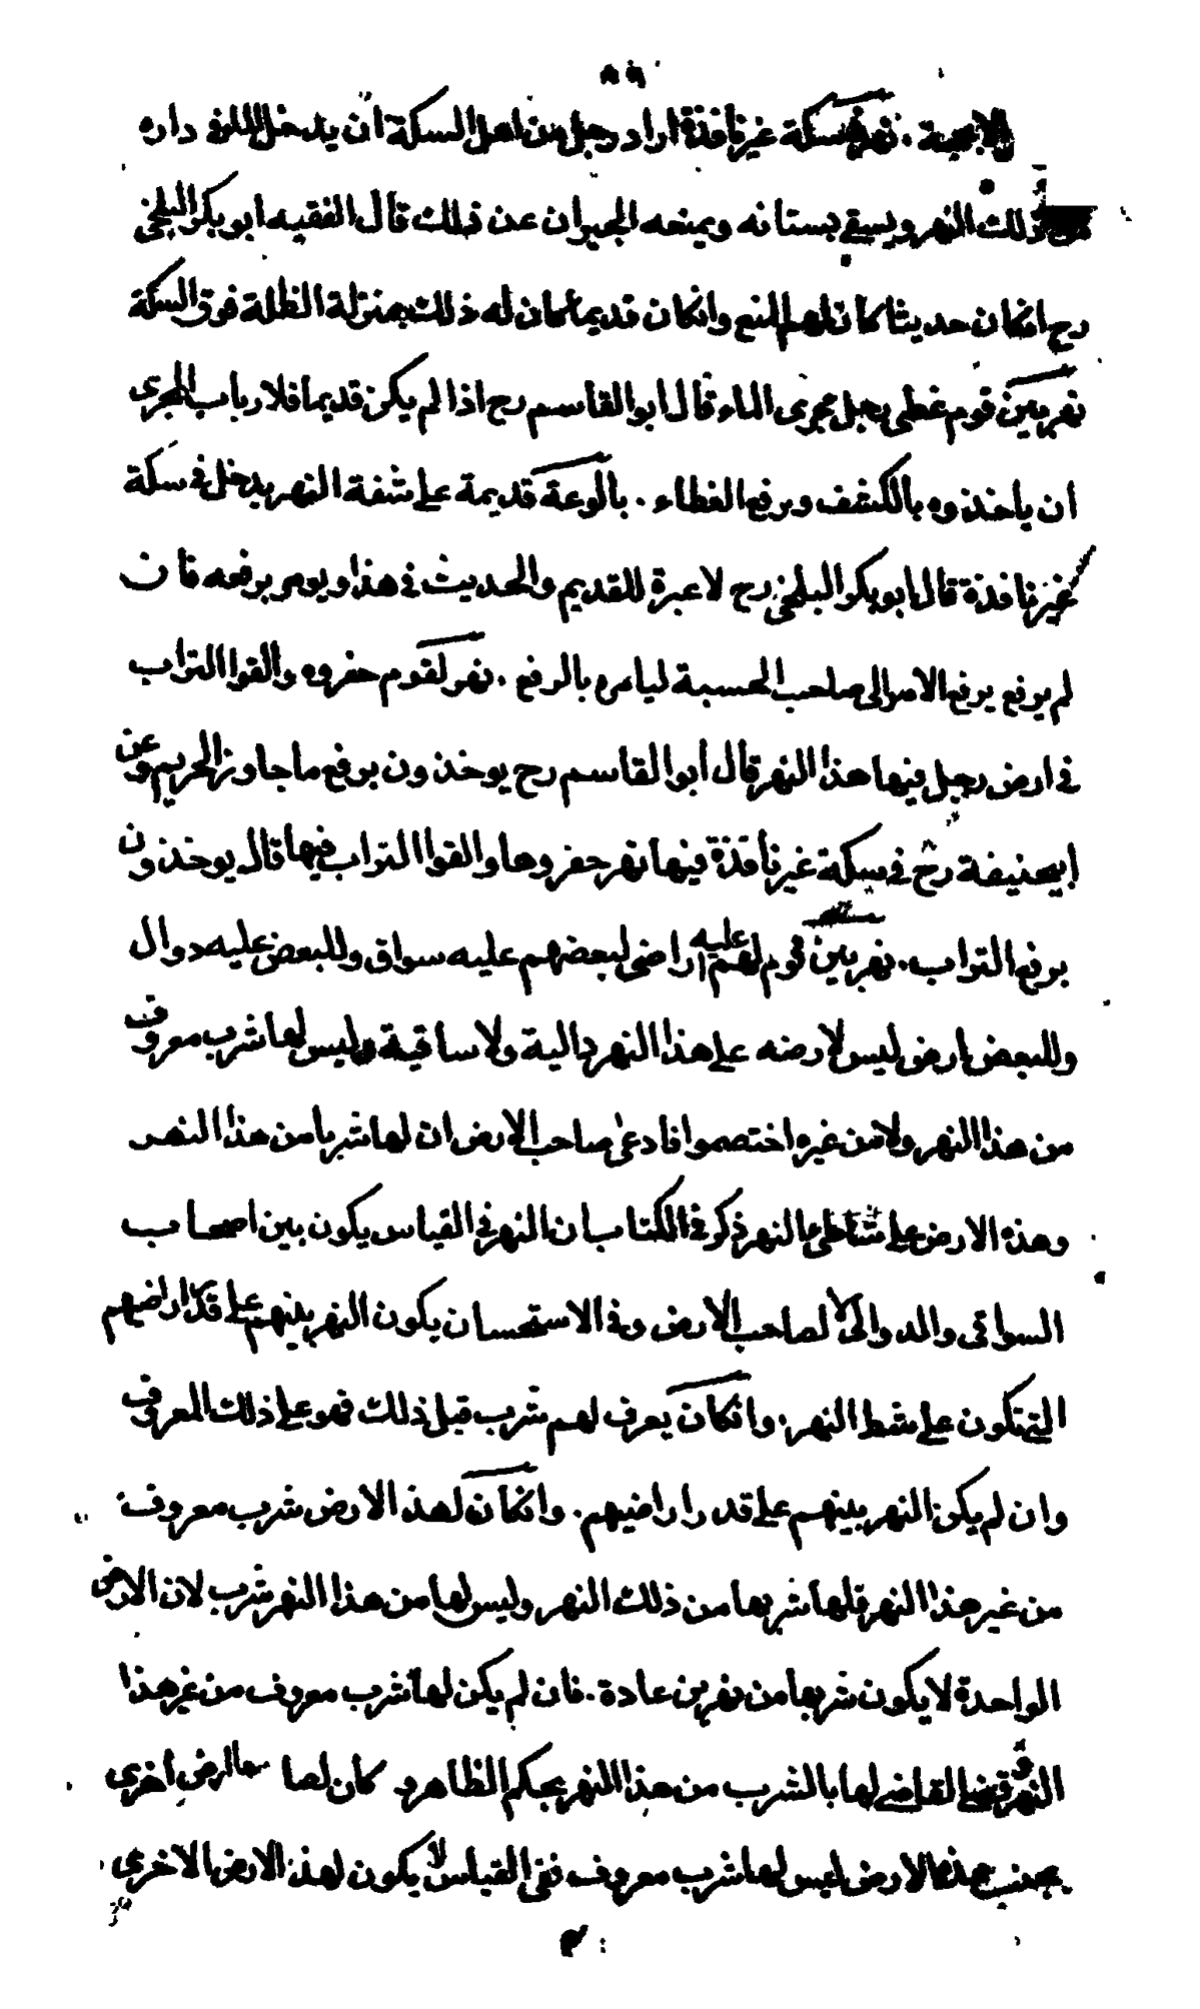 الاجمة . نهر في سكة غير نافذة اراد رجل من اهل السكة ان يدخل الماء في داره
من ذلك النهر ويسقي بستانه ويمنعه الجيران عن ذلك قال الفقيه ابو بكر البلخي
رح انكان حديثا كان لهم المنع وانكان قديما كان له ذلك بمنزلة الظلة فوق السكة
نهر بين قوم غطى رجل مجرى الماء قال ابو القاسم رح اذا لم يكن قديما فلارباب المجرى
ان ياخذوه بالكشف ويرفع الغطاء . بالوعة قديمة على شفة النهر يدخل في سكة
غير نافذة قال ابو بكر البلخي رح لا عبرة للقديم والحديث في هذا ويومر برفعه فان
لم يرفع يرفع الامر الى صاحب الحسبة ليامره بالرفع . نهر لقوم حفروه والقوا التراب
في ارض رجل فيها هذا النهر قال ابو القاسم رح يوخذون برفع ما جاوز الحريم وعن
ابيحنيفة رح في سكة غير نافذة فيها نهر حفروها والقوا التراب فيها قال يوخذون
برفع التراب . نهر بين قوم لهم عليه اراضى لبعضهم عليه سواق وللبعض عليه دوال
وللبعض ارض ليس لارضه على هذا النهر دالية ولا ساقية وليس لها شرب معروف
من هذا النهر ولا من غيره اختصموا فادعى صاحب الارض ان لها شربا من هذا النهر
وهذه الارض على شاطئ النهر ذكر في الكتاب ان النهر في القياس يكون بين اصحاب
السواقى والدوالى لا لصاحب الارض وفي الاستحسان يكون النهر بينهم على قدر اراضيهم
التي تكون على شط النهر . وانكان يعرف لهم شرب قبل ذلك فهو على ذلك المعروف
وان لم يكن النهر بينهم على قدر اراضيهم . وانكان لهذه الارض شرب معروف
من غير هذا النهر فلها شربها من ذلك النهر وليس لها من هذا النهر شرب لان الارض
الواحدة لا يكون شربها من نهرين عادة . فان لم يكن لها شرب معروف من غير هذا
النهر وقضى القاضي لها بالشرب من هذا النهر بحكم الظاهر و كان لصاحبها ارض اخرى
بجنب هذه الارض ليس لها شرب معروف ففي القياس لا يكون لهذه الارض الاخرى